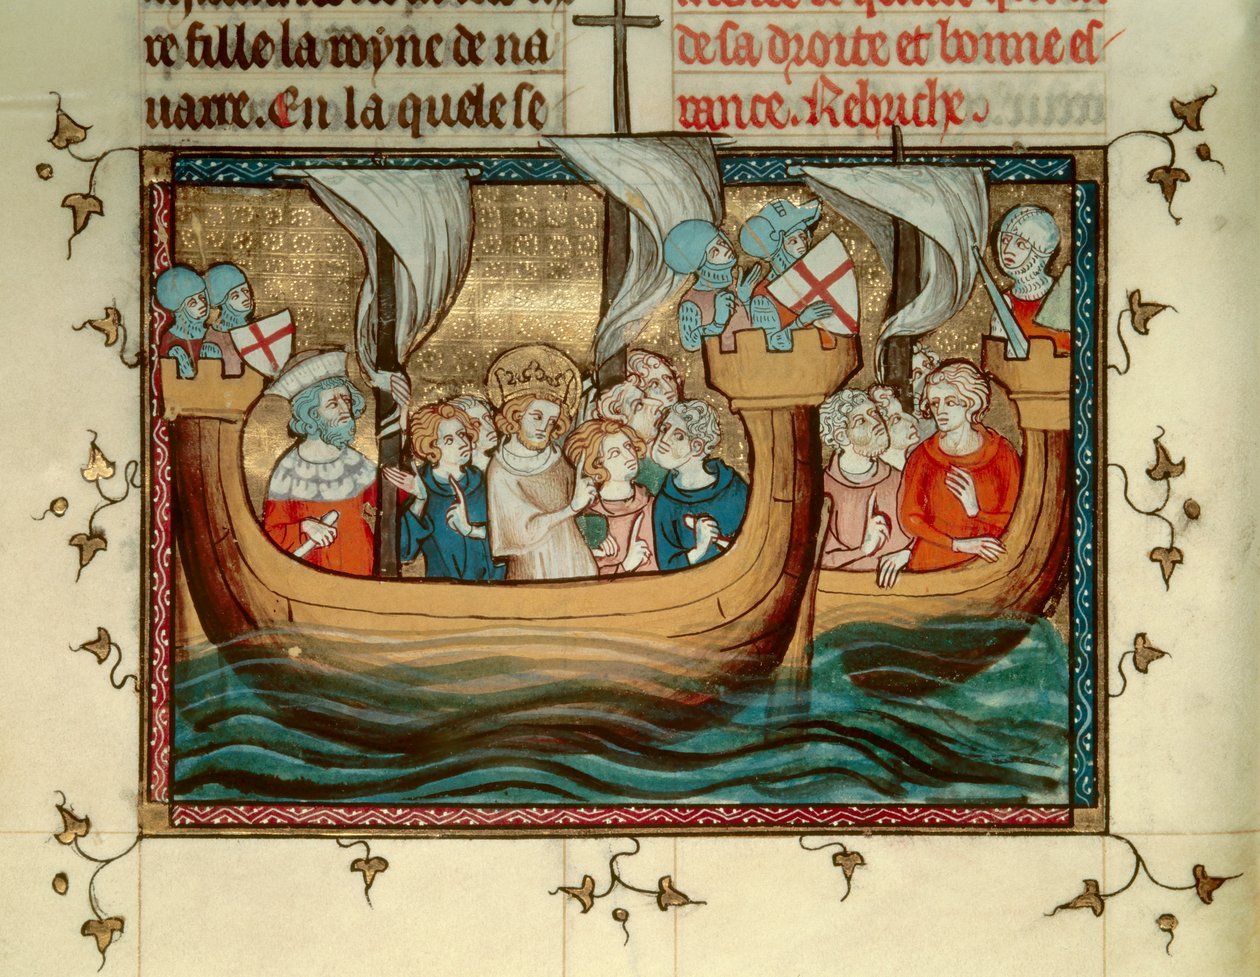 re fille la royne de na
uarre. En la quele se
de sa droite et bonne es
rance. Rebruche.